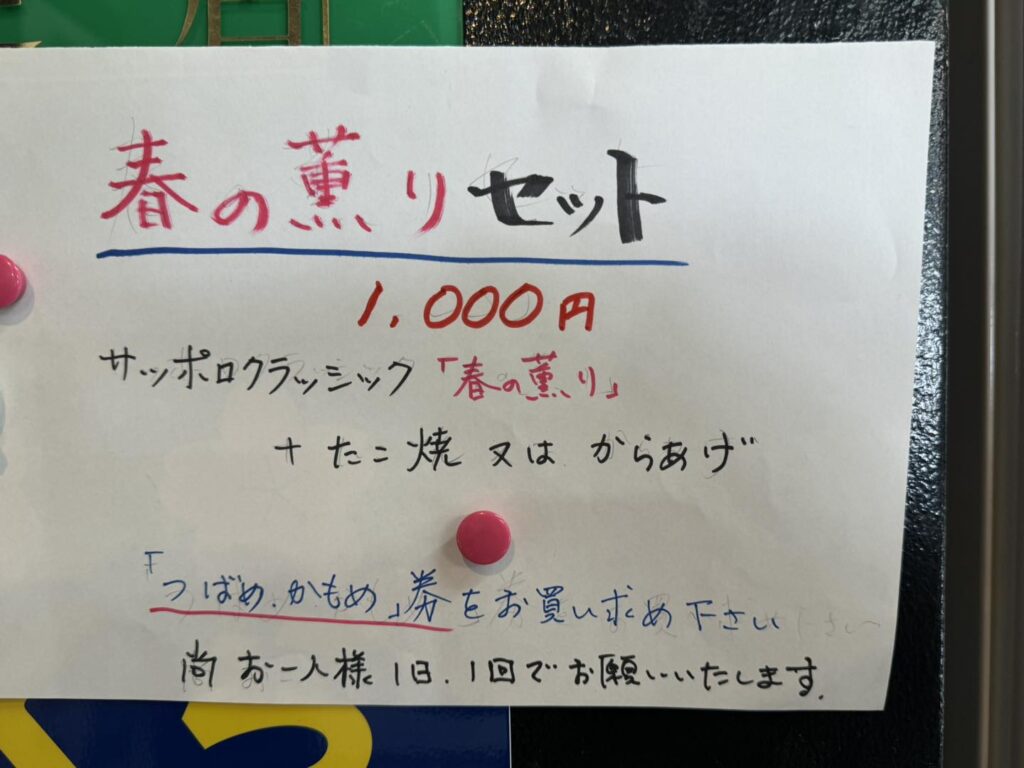 春の薫りセット
1,000円
サッポロクラッシック「春の薫り」
+ たこ焼 又は からあげ
「つばめ.かもめ」券をお買い求め下さい
尚 お一人様 1日.1回でお願いいたします.